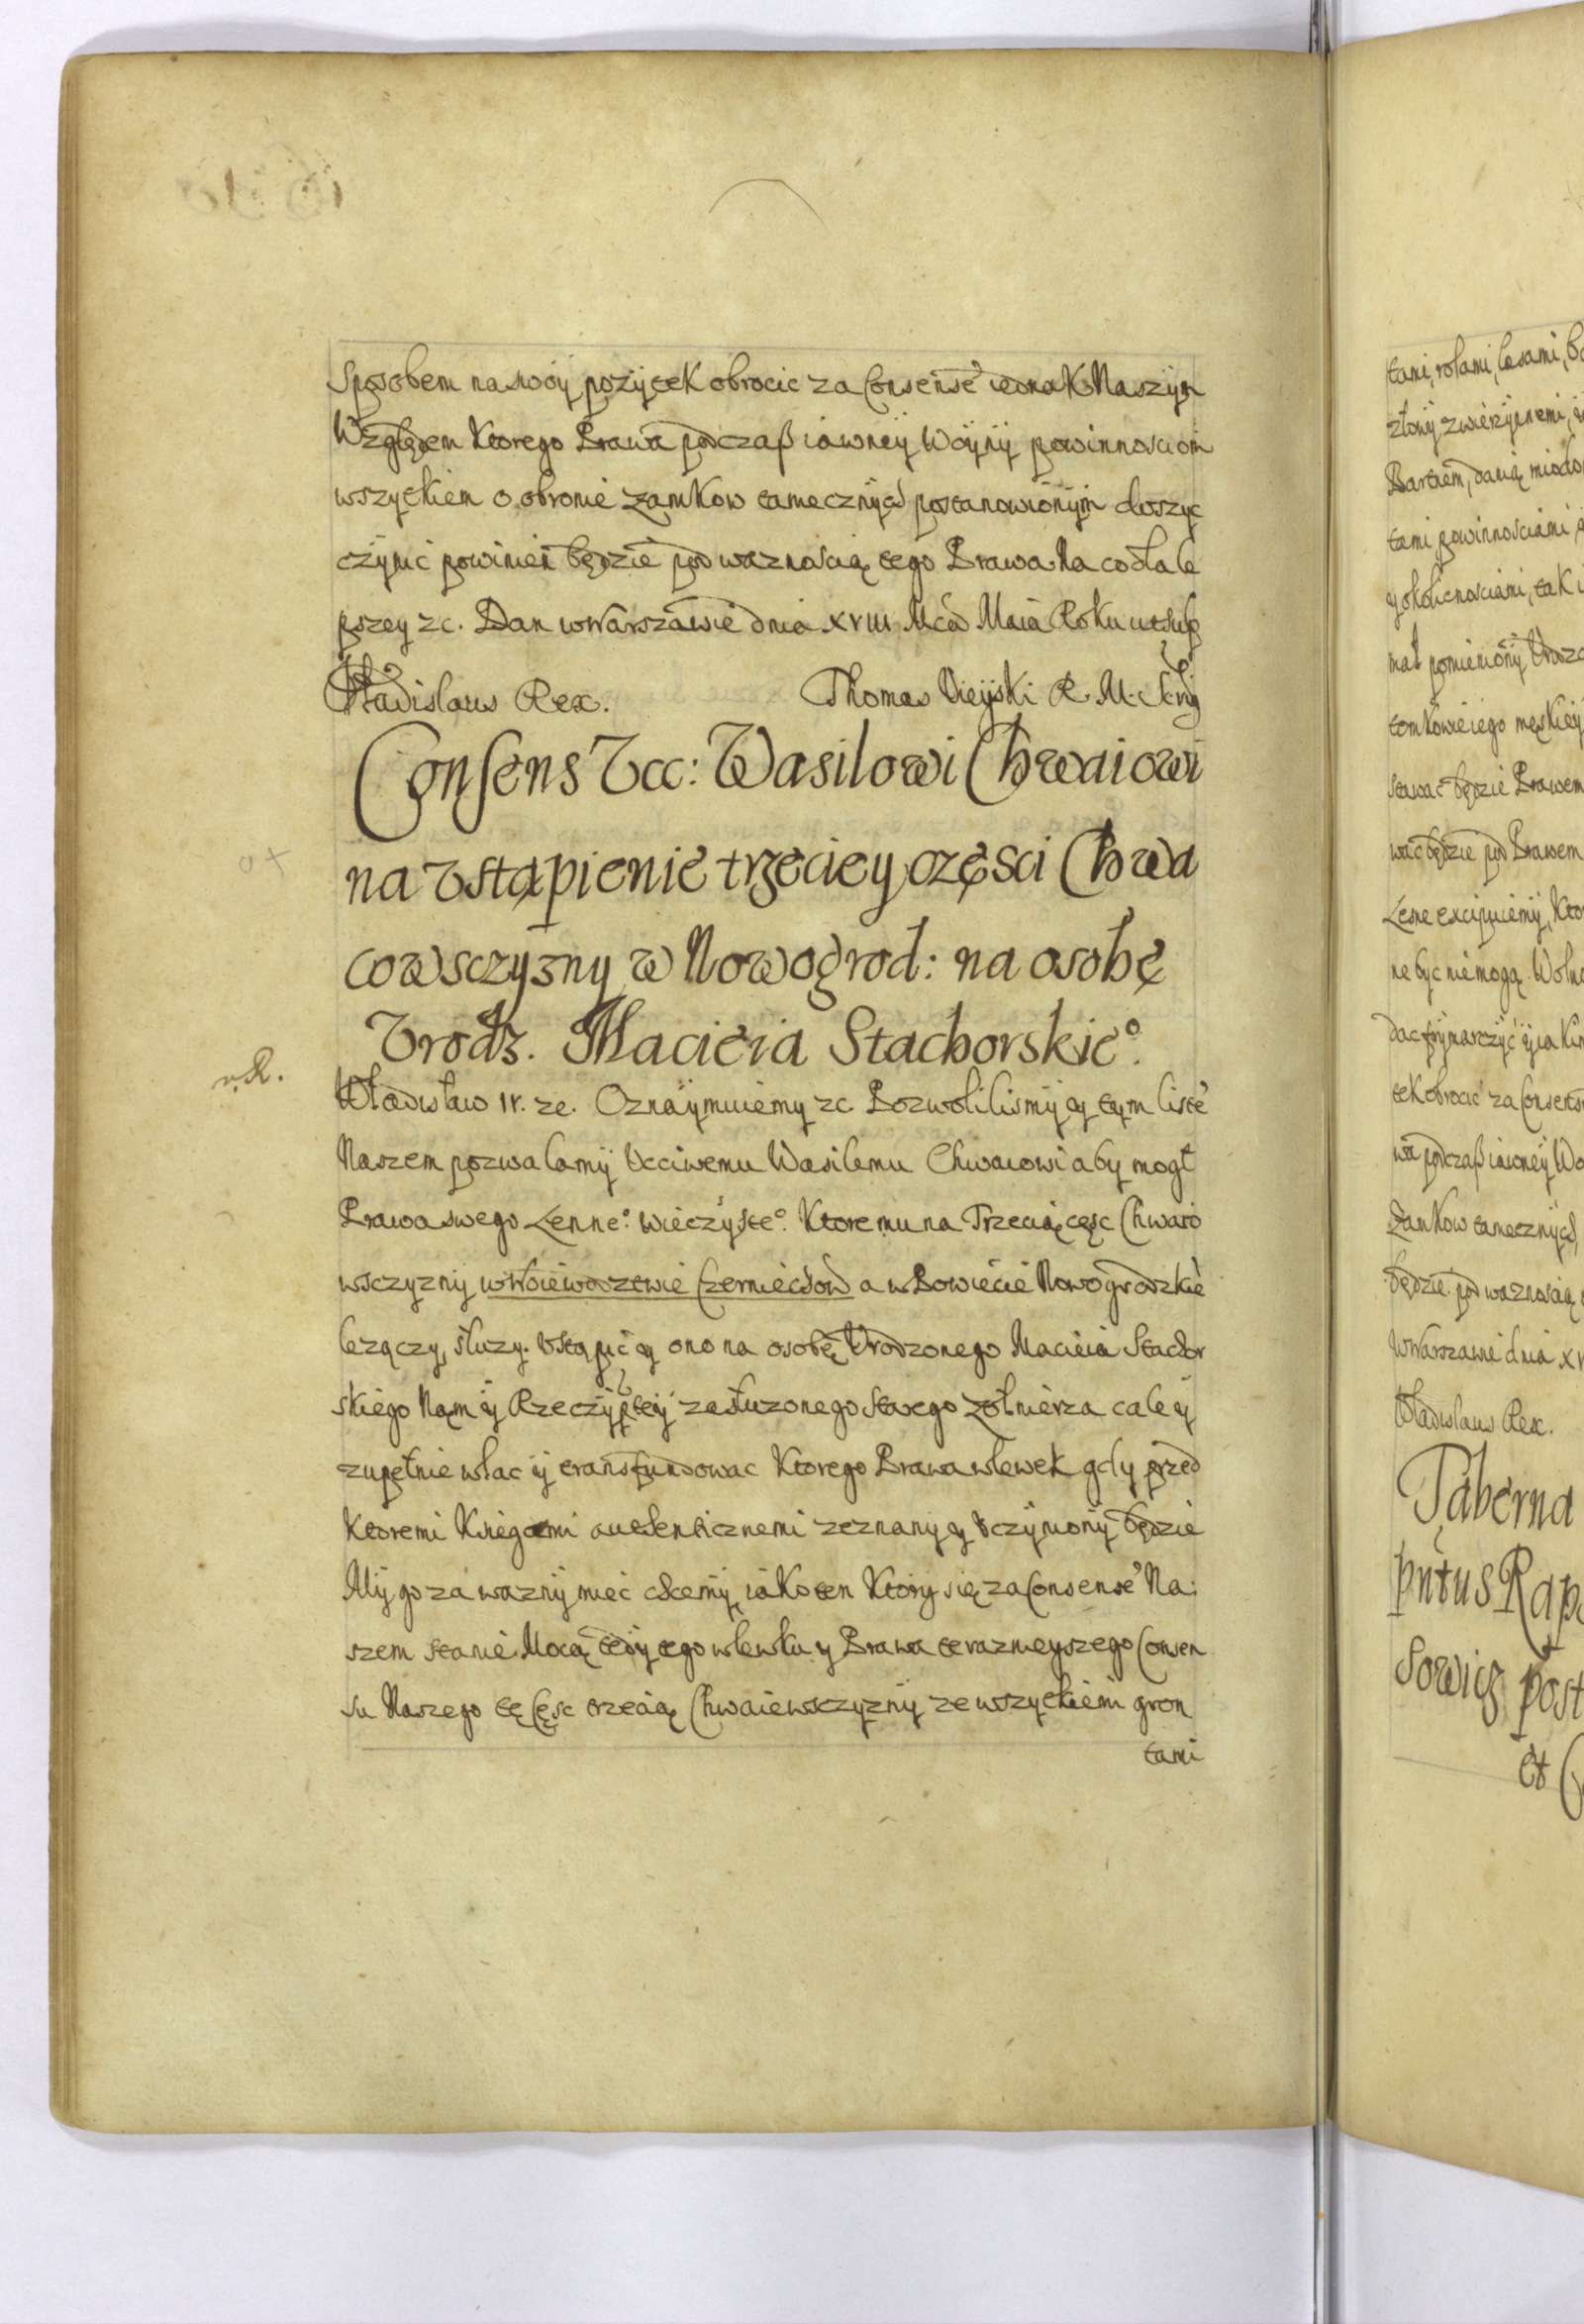 Sposobem na swoy pozytek obrocic za Consense iednak Naszym
Względem Ktorego Prawa podczaß iawney Woyny powinnosciom
wszytkiem o obronie Zamkow tamecznych postanowionym doszyc
czynic powinien będzie pod waznoscią tego Prawa. Na co dla le
pszey zc. Dan w Warszawie dnia XVIII Mca Maia Roku ut sup
Vladislaus Rex. Thomas Vieyski R. M. Scrig
Consens Vcc: Wasilowi Chwaiowi
na Vstąpienie trzeciey częsci Chwa
cowsczyzny w Nowogrod: na osobę
Vrodz. Macieia Stachorskieº.
v. R.
Władisław IV. zc. Oznaymuiemy zc. Pozwolilismy y tym liste
Naszem pozwalamy Vcciwemu Wasilemu Chwaiowi aby mogł
Prawa swego Lenneº. wieczysteº. Ktore mu na Trzecią cęsc Chwaio
wsczyzny w Woiewodztwie Czerniechow a w Powiecie Nowogrodzkie
lezączy, słuzy. Vstąpic y ono na osobę Vrodzonego Macieia Stachor
skiego Nąm y Rzeczyptey zasłuzonego starego zołnierza cale y
zupełnie wlac y transfundowac Ktorego Prawa wlewek gdy przed
Ktoremi Xięgami autenticznemi zeznany y Vczyniony będzie
My go za wazny miec chcemy, iako ten Ktory się za Consense Na:
szem stanie. Mocą tedy tego wlewku y Prawa terazneyszego Consen
su Naszego tę Cęsc trzecią Chwaiewsczyzny ze wszytkiemi gron
tami
tami, rolami, lasami,
Bartiem, danią
tami powinnosciami
y okolicnosciami, tak
mał pomieniony
tomkowie iego męskiey
stawac będzie Prawem
wac będzie pod Prawem
Lesne excipuiemy,
ne byc nie mogą. Woln
tek obrocic za
wa podczaß iawney
Zamkow tamecznych,
będzie pod waznoscią
w Warszawie dnia
Vladislaus Rex.
Taberna
et